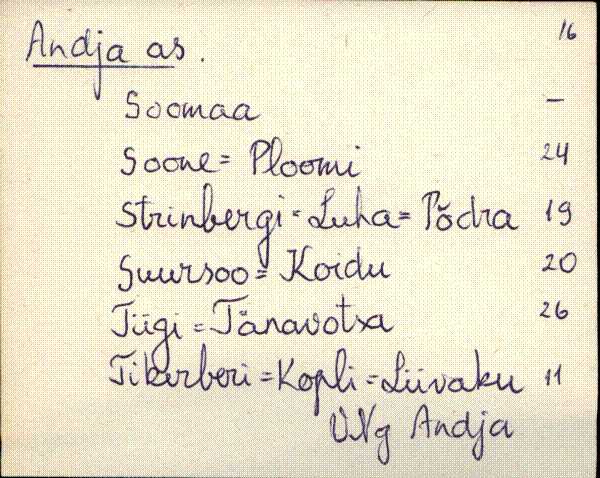 16
Andja as.
Soomaa –
Soone = Ploomi 24
Strinbergi = Luha = Põdra 19
Suursoo = Koidu 20
Tiigi = Tänavotsa 26
Tikerberi = Kopli = Liivaku 11
VNg Andja